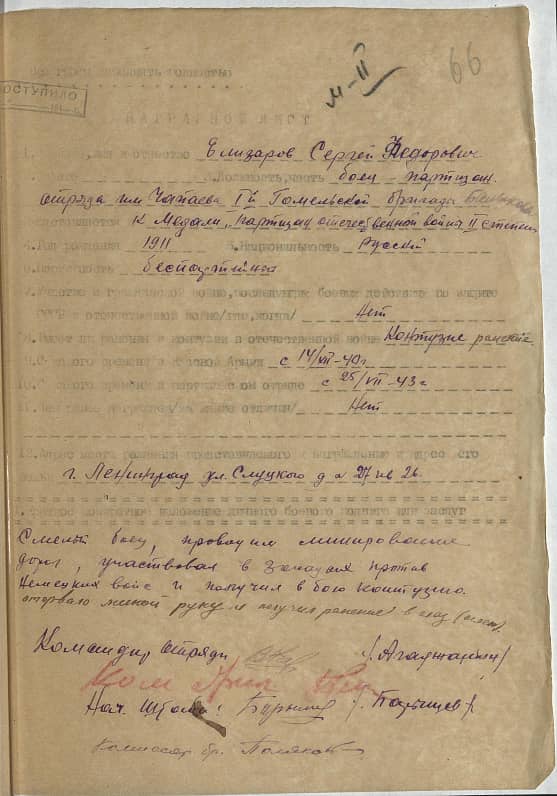 М-II
66
1. , имя и отчество Елизаров Сергей Федорович
2. Должность, часть боец - партизан
отряда им Чапаева 1й Гомельской бригады
к медали "Партизан отечественной войны II степени
4. Год рождения 1911 5. Национальность Русский
6. Партийность беспартийный
7. Участие в гражданской войне, последующих боевых действиях по защите
СССР и отечественной войне /где, когда/ Нет
8. Имеет ли ранения и контузии в отечественной войне Контузия ранение
9. С какого времени в Красной Армии с 14/VII-40г
10. С какого времени в партизанском отряде с 25/VII-43г
11. Чем ранее награжден /за какие отличия/ Нет
12. адрес его
г. Ленинград ул. Слуцкого д № 27 кв 26.
конкретное изложение личного боевого подвига или заслуг
Смелый боец, проводил минирование
дорог, участвовал в засадах против
Немецких войск и получил в бою контузию.
оторвало миной руку и получил ранение в глаз
Командир отряда /Агаджанян/
Нач. Штаба:
Комиссар бр. Поляков